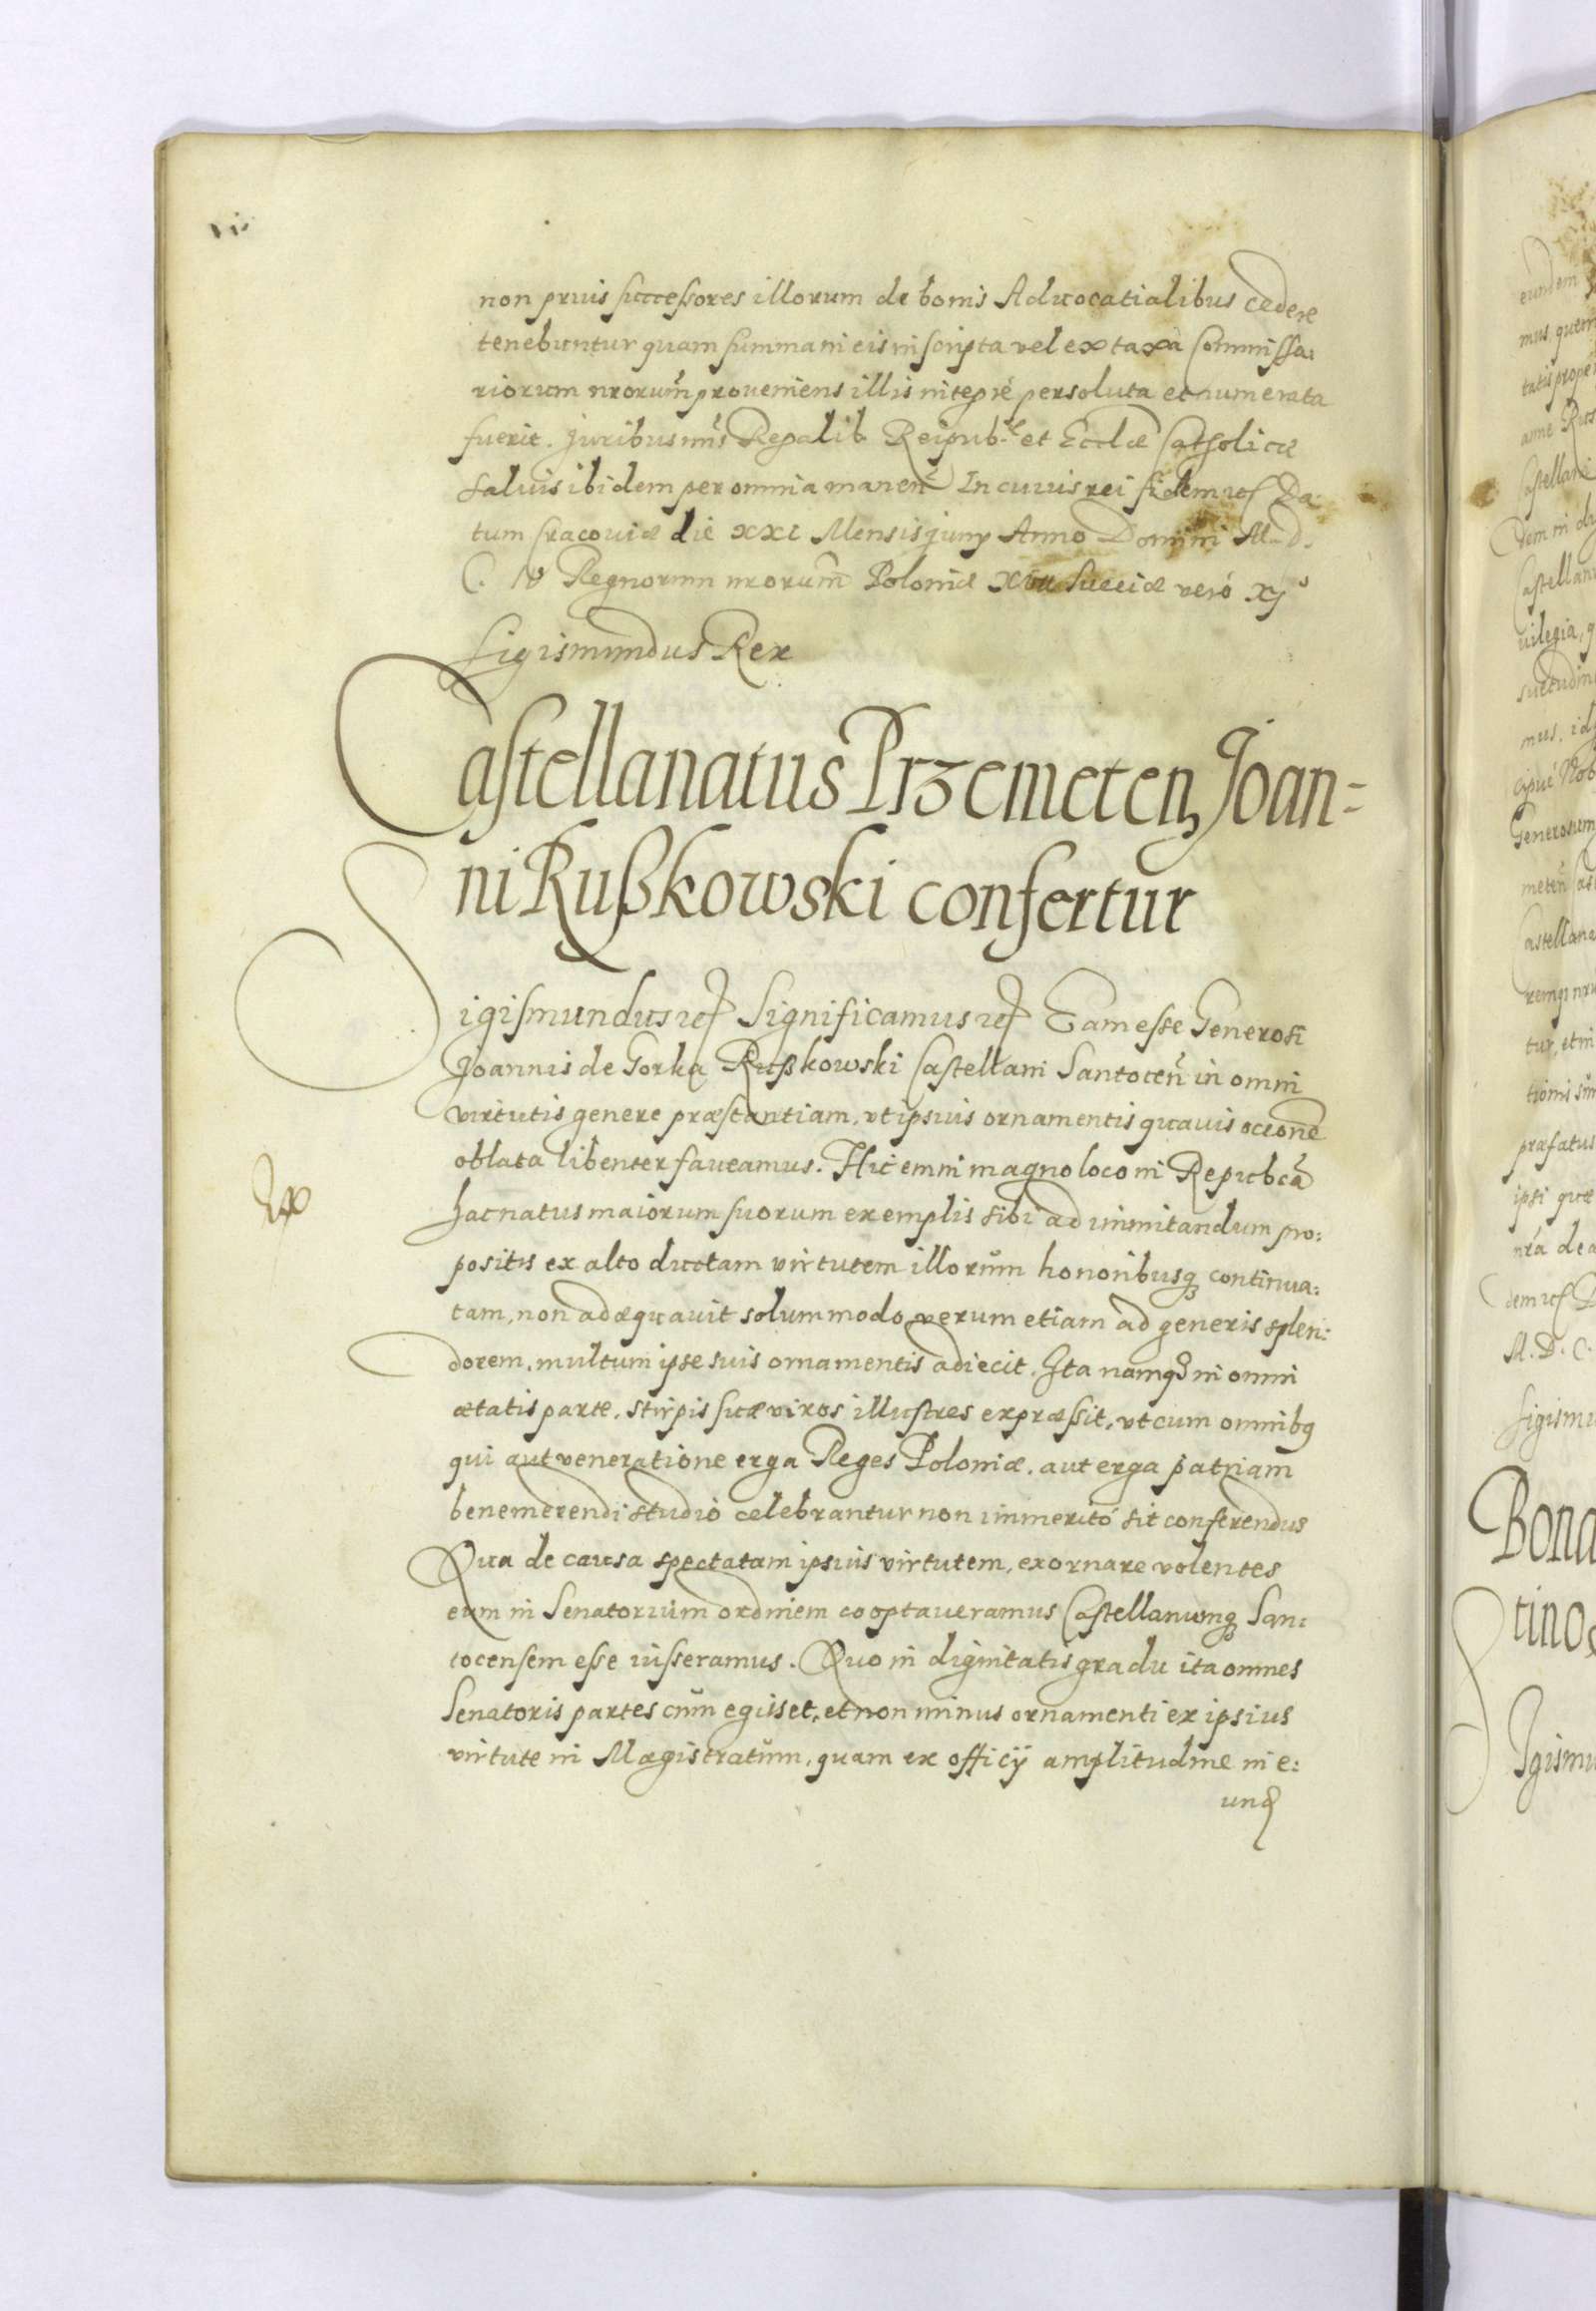 non prius successores illorum de bonis Aduocatialibus cedere
tenebuntur quam summa in eis inscripta vel ex taxa Commissa:
riorum nrorum̃ proueniens illis integrè persoluta et numerata
fuerit. Juribus nr̃is Regalib Reipub: et Eccl̃æ Catholicæ
saluis ibidem per omnia manen̄ In cuius rei fidem etc Da:
tum Cracouiæ die XXI Mensis Juny Anno Domini M. D.
C. IV Regnorum nrorum̃ Poloniæ XVII Sueciæ verò XI°
Sigismundus Rex
Castellanatus Przemeten̄ Joan=
ni Rußkowski confertur
Sigismundus etc Significamus etc Eam esse Generosi
Joannis de Gorka Rußkowski Castellani Santocen̄ in omni
virtutis genere præstantiam, vt ipsius ornamentis quauis occone̅
oblata libenter faueamus. Hic enim magno loco in Republca̅
hac natus maiorum suorum exemplis sibi ad immitandum pro:
positis ex alto ductam virtutem illorum̃ honoribusq continua:
tam, non adæquauit solummodo, verum etiam ad generis splen:
dorem, multum ipse suis ornamentis adiecit. Ita namq in omni
ætatis parte, stirpis suæ viros illustres expræssit, vt cum omnibq
qui aut veneratione erga Reges Poloniæ, aut erga patriam
benemerendi studio celebrantur non immeritó sit conferendus
Qua de causa spectatam ipsius virtutem, exornare volentes
eum in Senatorium ordinem cooptaueramus Castellanumq San:
tocensem esse iusseramus. Quo in dignitatis gradu ita omnes
Senatoris partes cum̃ egisset, et non minus ornamenti ex ipsius
virtute in Magistratum̃, quam ex officij amplitudine in e:
unđ
eundem
mus quem
Castellani
uilegia, q
Generosum
Castellana
præfatus
ipsi quæ
M. D. C.
Sigismu
Bona
tino
Igismu